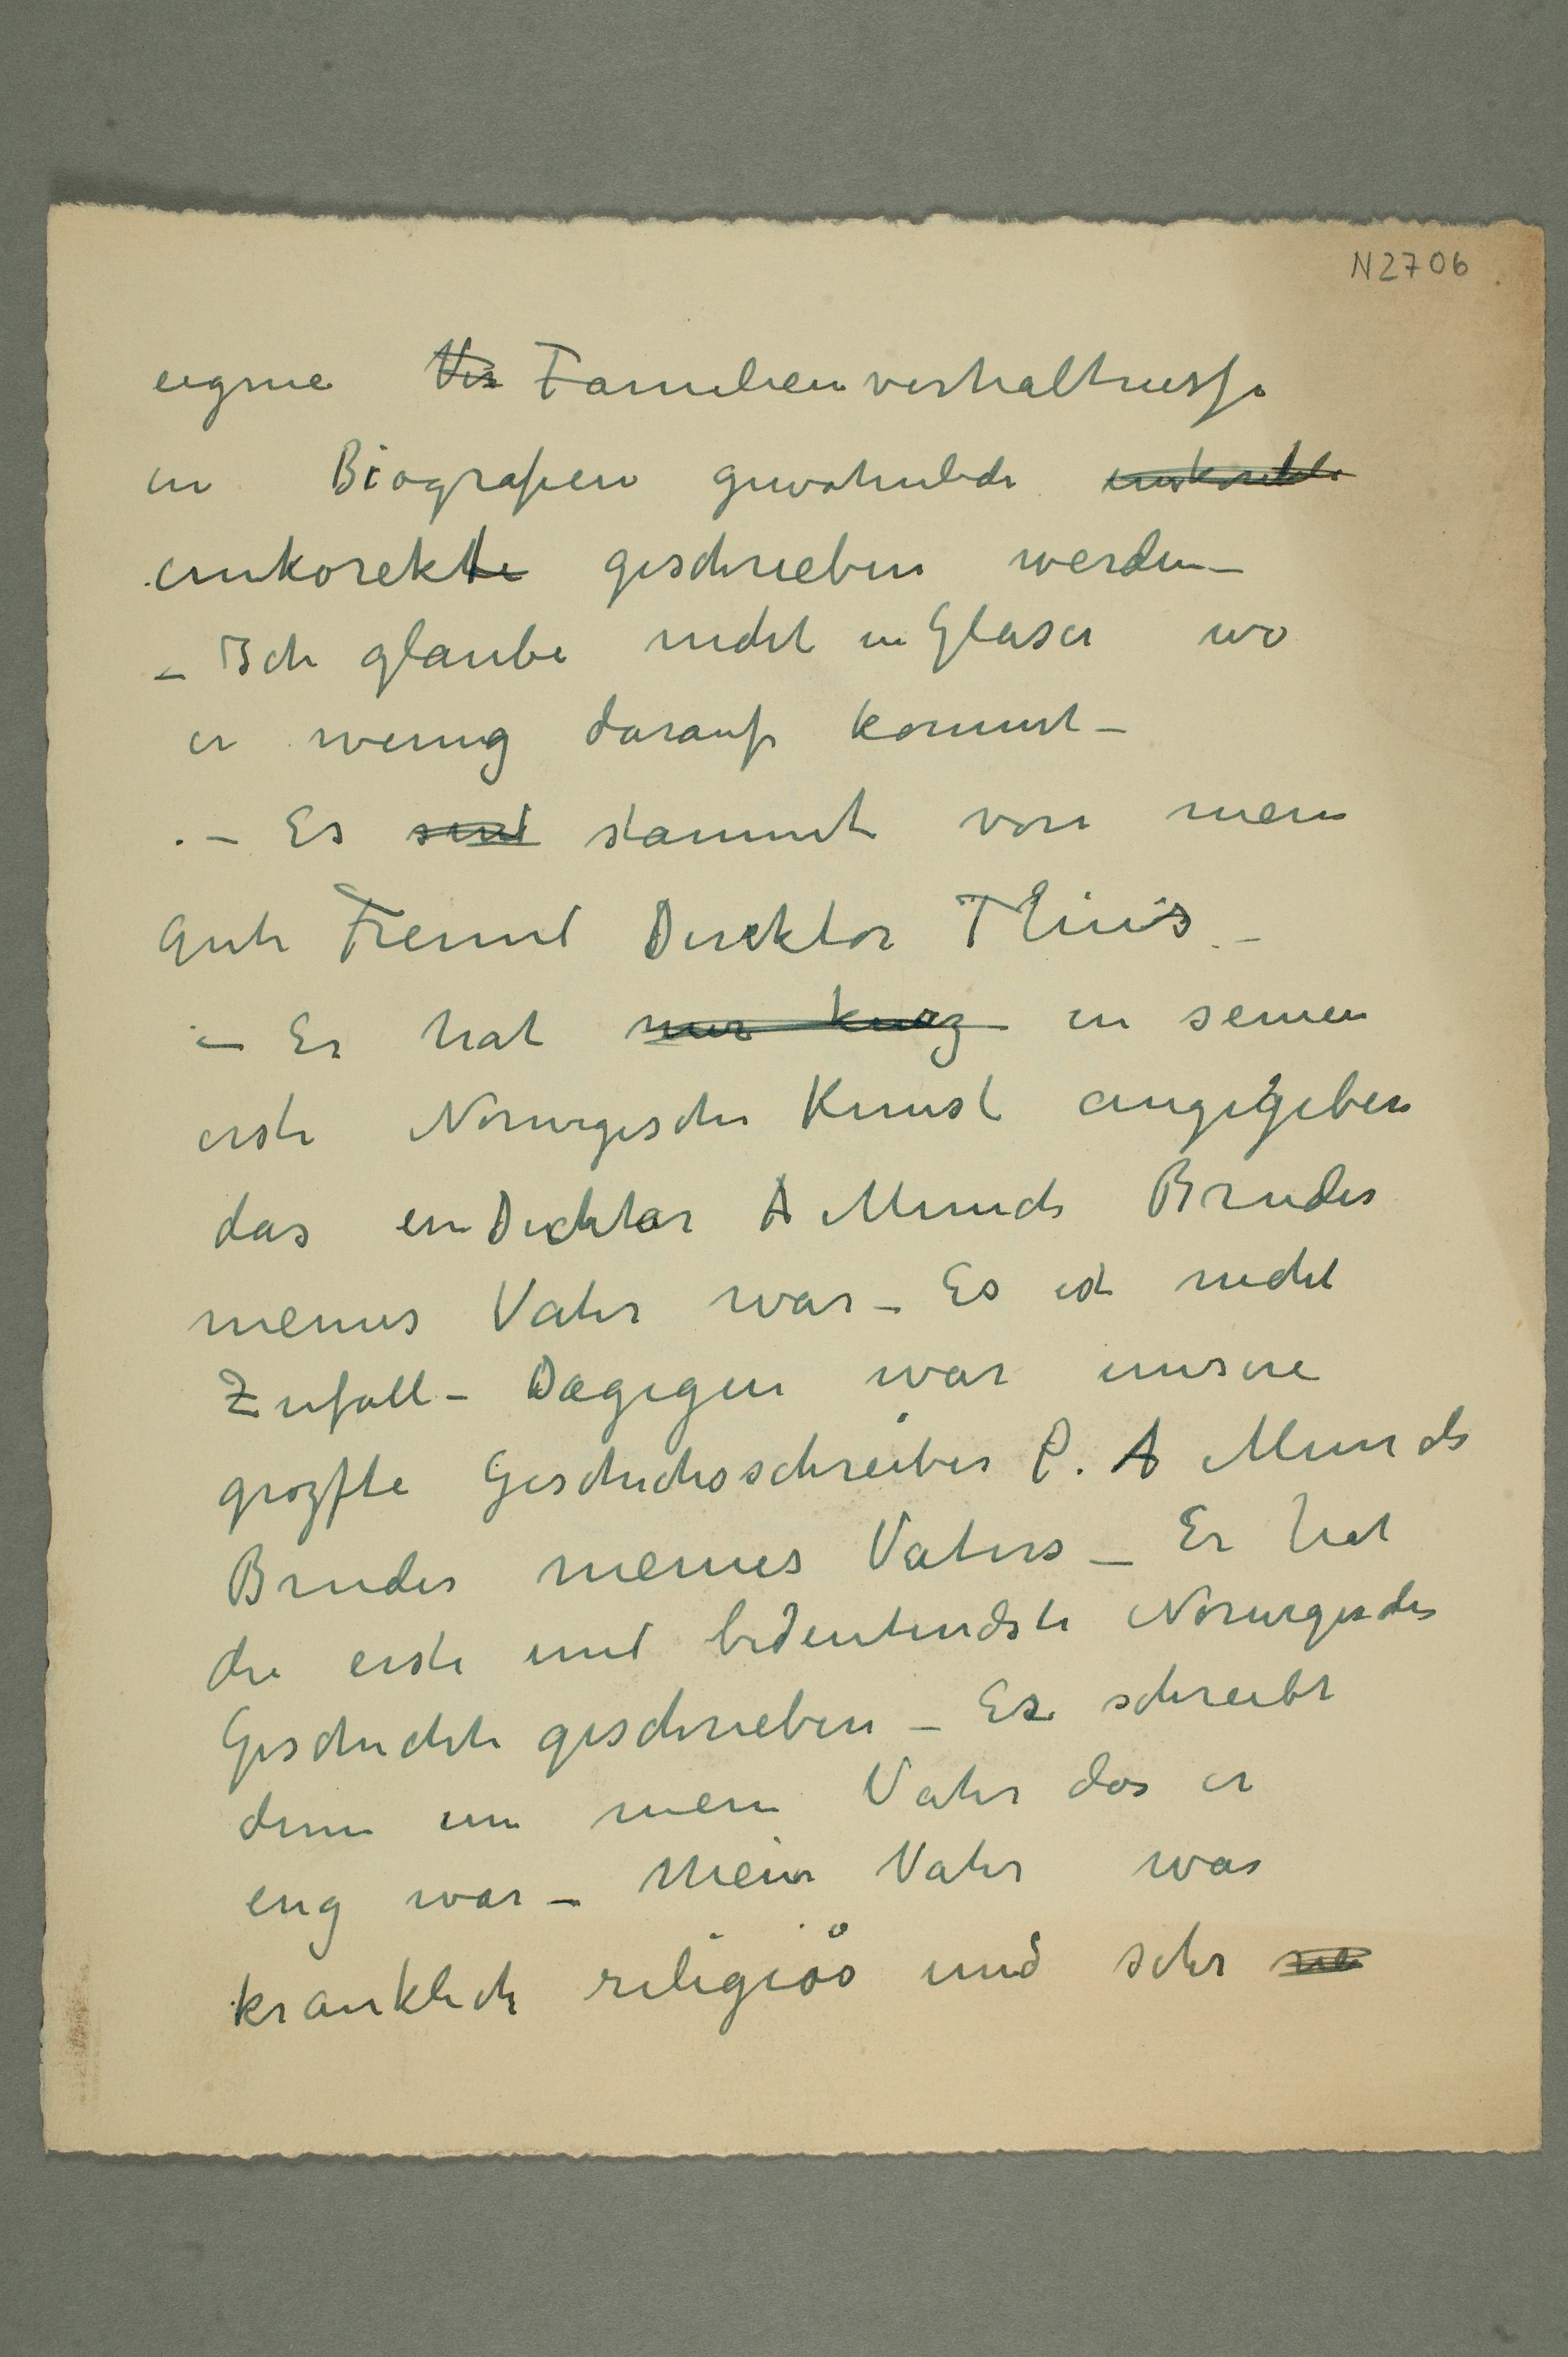 N2706
eigene Ver Familienverhaltnisse
in Biografien gewohnlich unkorekte
unkorekte geschrieben werden –
– Ich glaube nicht in Glaser wo
er wenig darauf kommt –
. – Es sind stammt von mein
Gute Freund Direktor Thiis –
– Er hat nur kurz in seinen
erste Norwegische Kunst angegeben
das ein Dichter A Munch Bruder
meines Vater war – Es ist nicht
Zufall – Dagegen war unsere
grozste Geschichsschreiber P. A Munch
Bruder meines Vaters – Er hat
die erste und bedeutendste Norwegische
Geschichte geschrieben – Er schreibt
denn um mein Vater das er
eng war – Mein Vater was
kranklich religiös und sehr